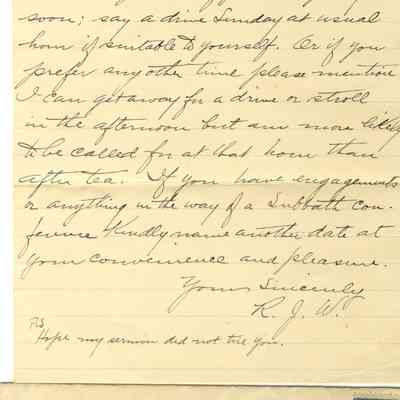 soon; say a drive Sunday at usual
hour if suitable to yourself. Or if you
prefer any other time please mention
I can get away for a drive or stroll
in the afternoon but am more likely
to be called for at that hour than
after tea. If you have engagements
or anything in the way of a Sabbath con-
ference Kindly name another date at
your convenience and pleasure.
Yours Sincerely
R. J. W.
P.S.
Hope my sermon did not tire you.